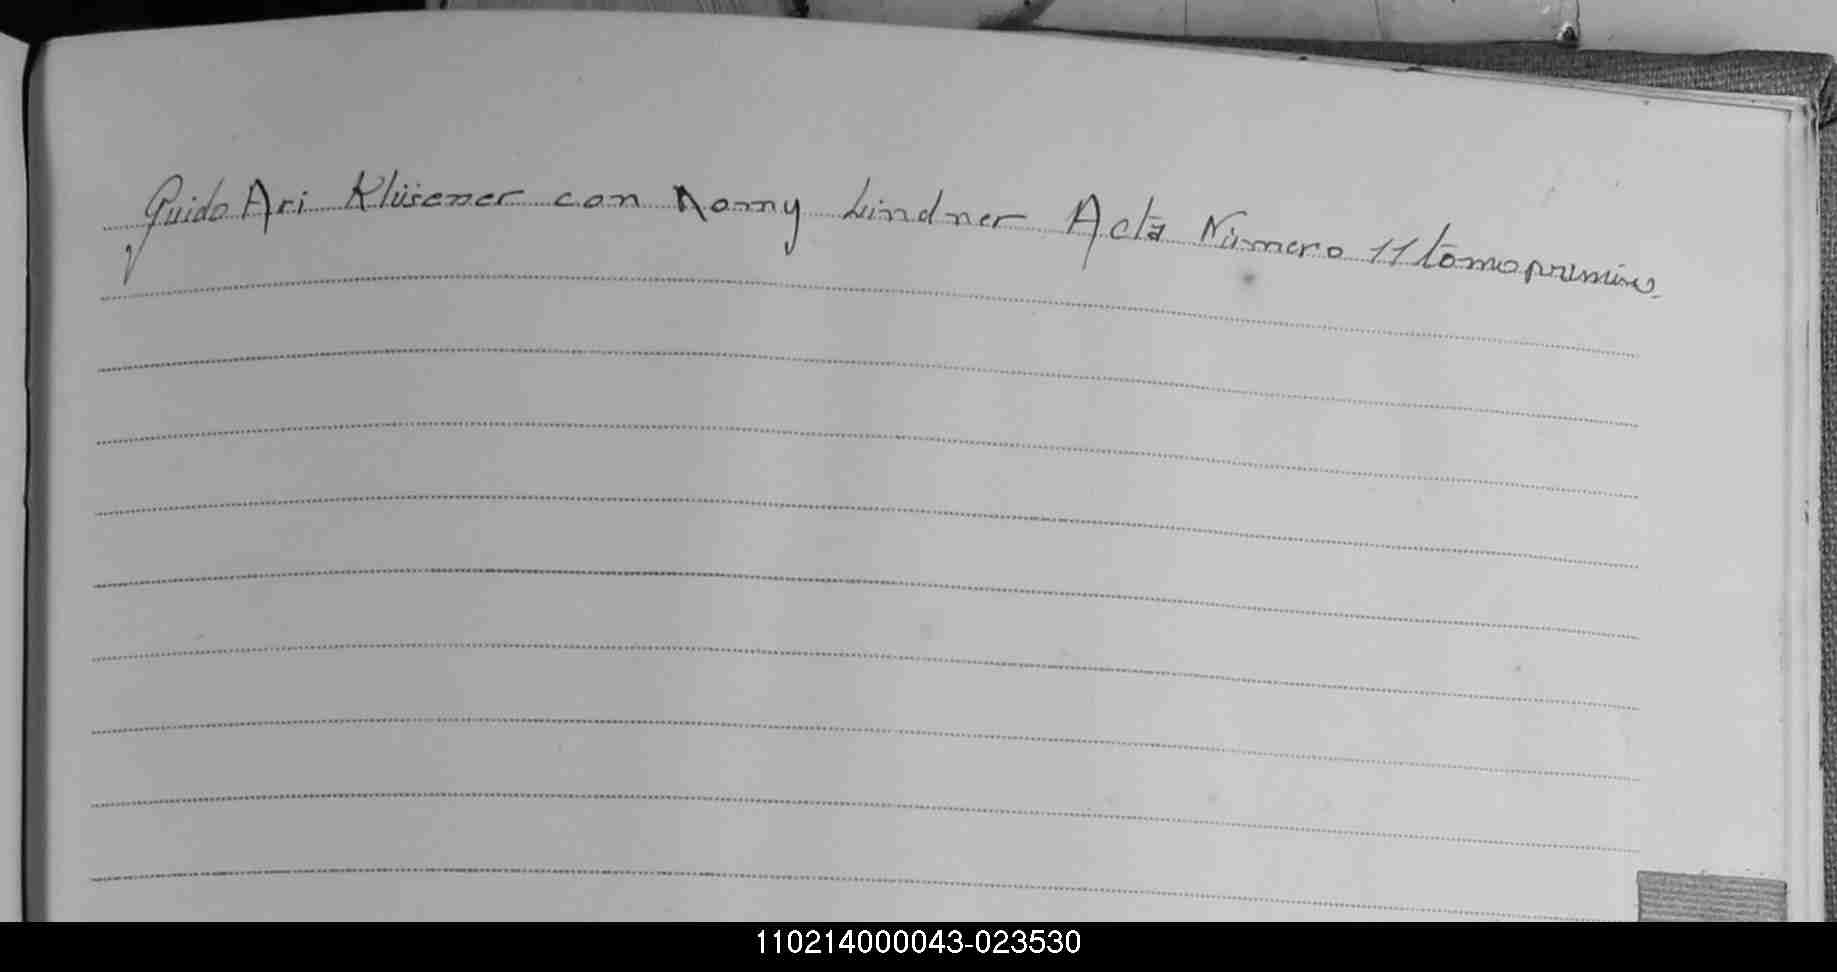 Guido Ari Klüsener con Nomy Lindner Acta Número 11 tomo primero.
110214000043-023530